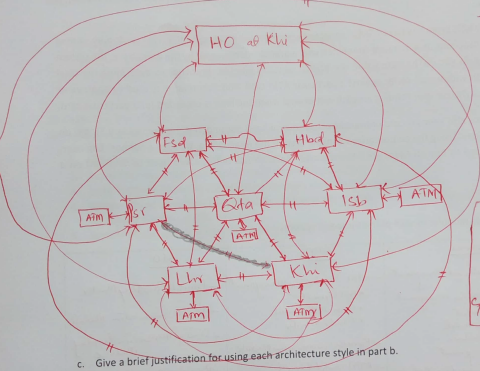 HO of Khi
Fsd
Hbad
Psr
Qta
Isb
ATM
ATM
ATM
Lhr
Khi
ATM
ATM
c. Give a brief justification for using each architecture style in part b.